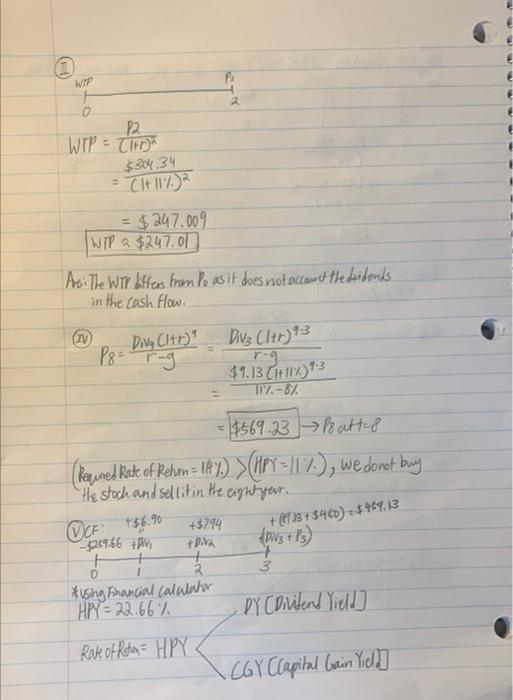 II
WTP P2
0 2
WTP = P2 / (1+r)^2
= $304.34 / (1+11%)^2
= $247.009
WTP ≈ $247.01
Ans: The WTP differs from P0 as it does not account the dividends
in the cash flow.
IV
P8 = Div9 (1+r)^9 / r-g = Div3 (1+r)^9-3 / r-g
= $9.13 (1+11%)^9-3 / 11%-8%
= $569.23 → P8 at t=8
(Required Rate of Return = %) > (HPY = 11%), we do not buy
the stock and sell it in the eight year.
V CF: +$6.90 +$7.94 + ($9.13 + $460) = $469.13
-$259.66 +Div1 +Div2 (Div3 + P3)
0 1 2 3
*using Financial calculator
HPY = 22.66%
DY [Dividend Yield]
Rate of Return = HPY <
CGY [Capital Gain Yield]